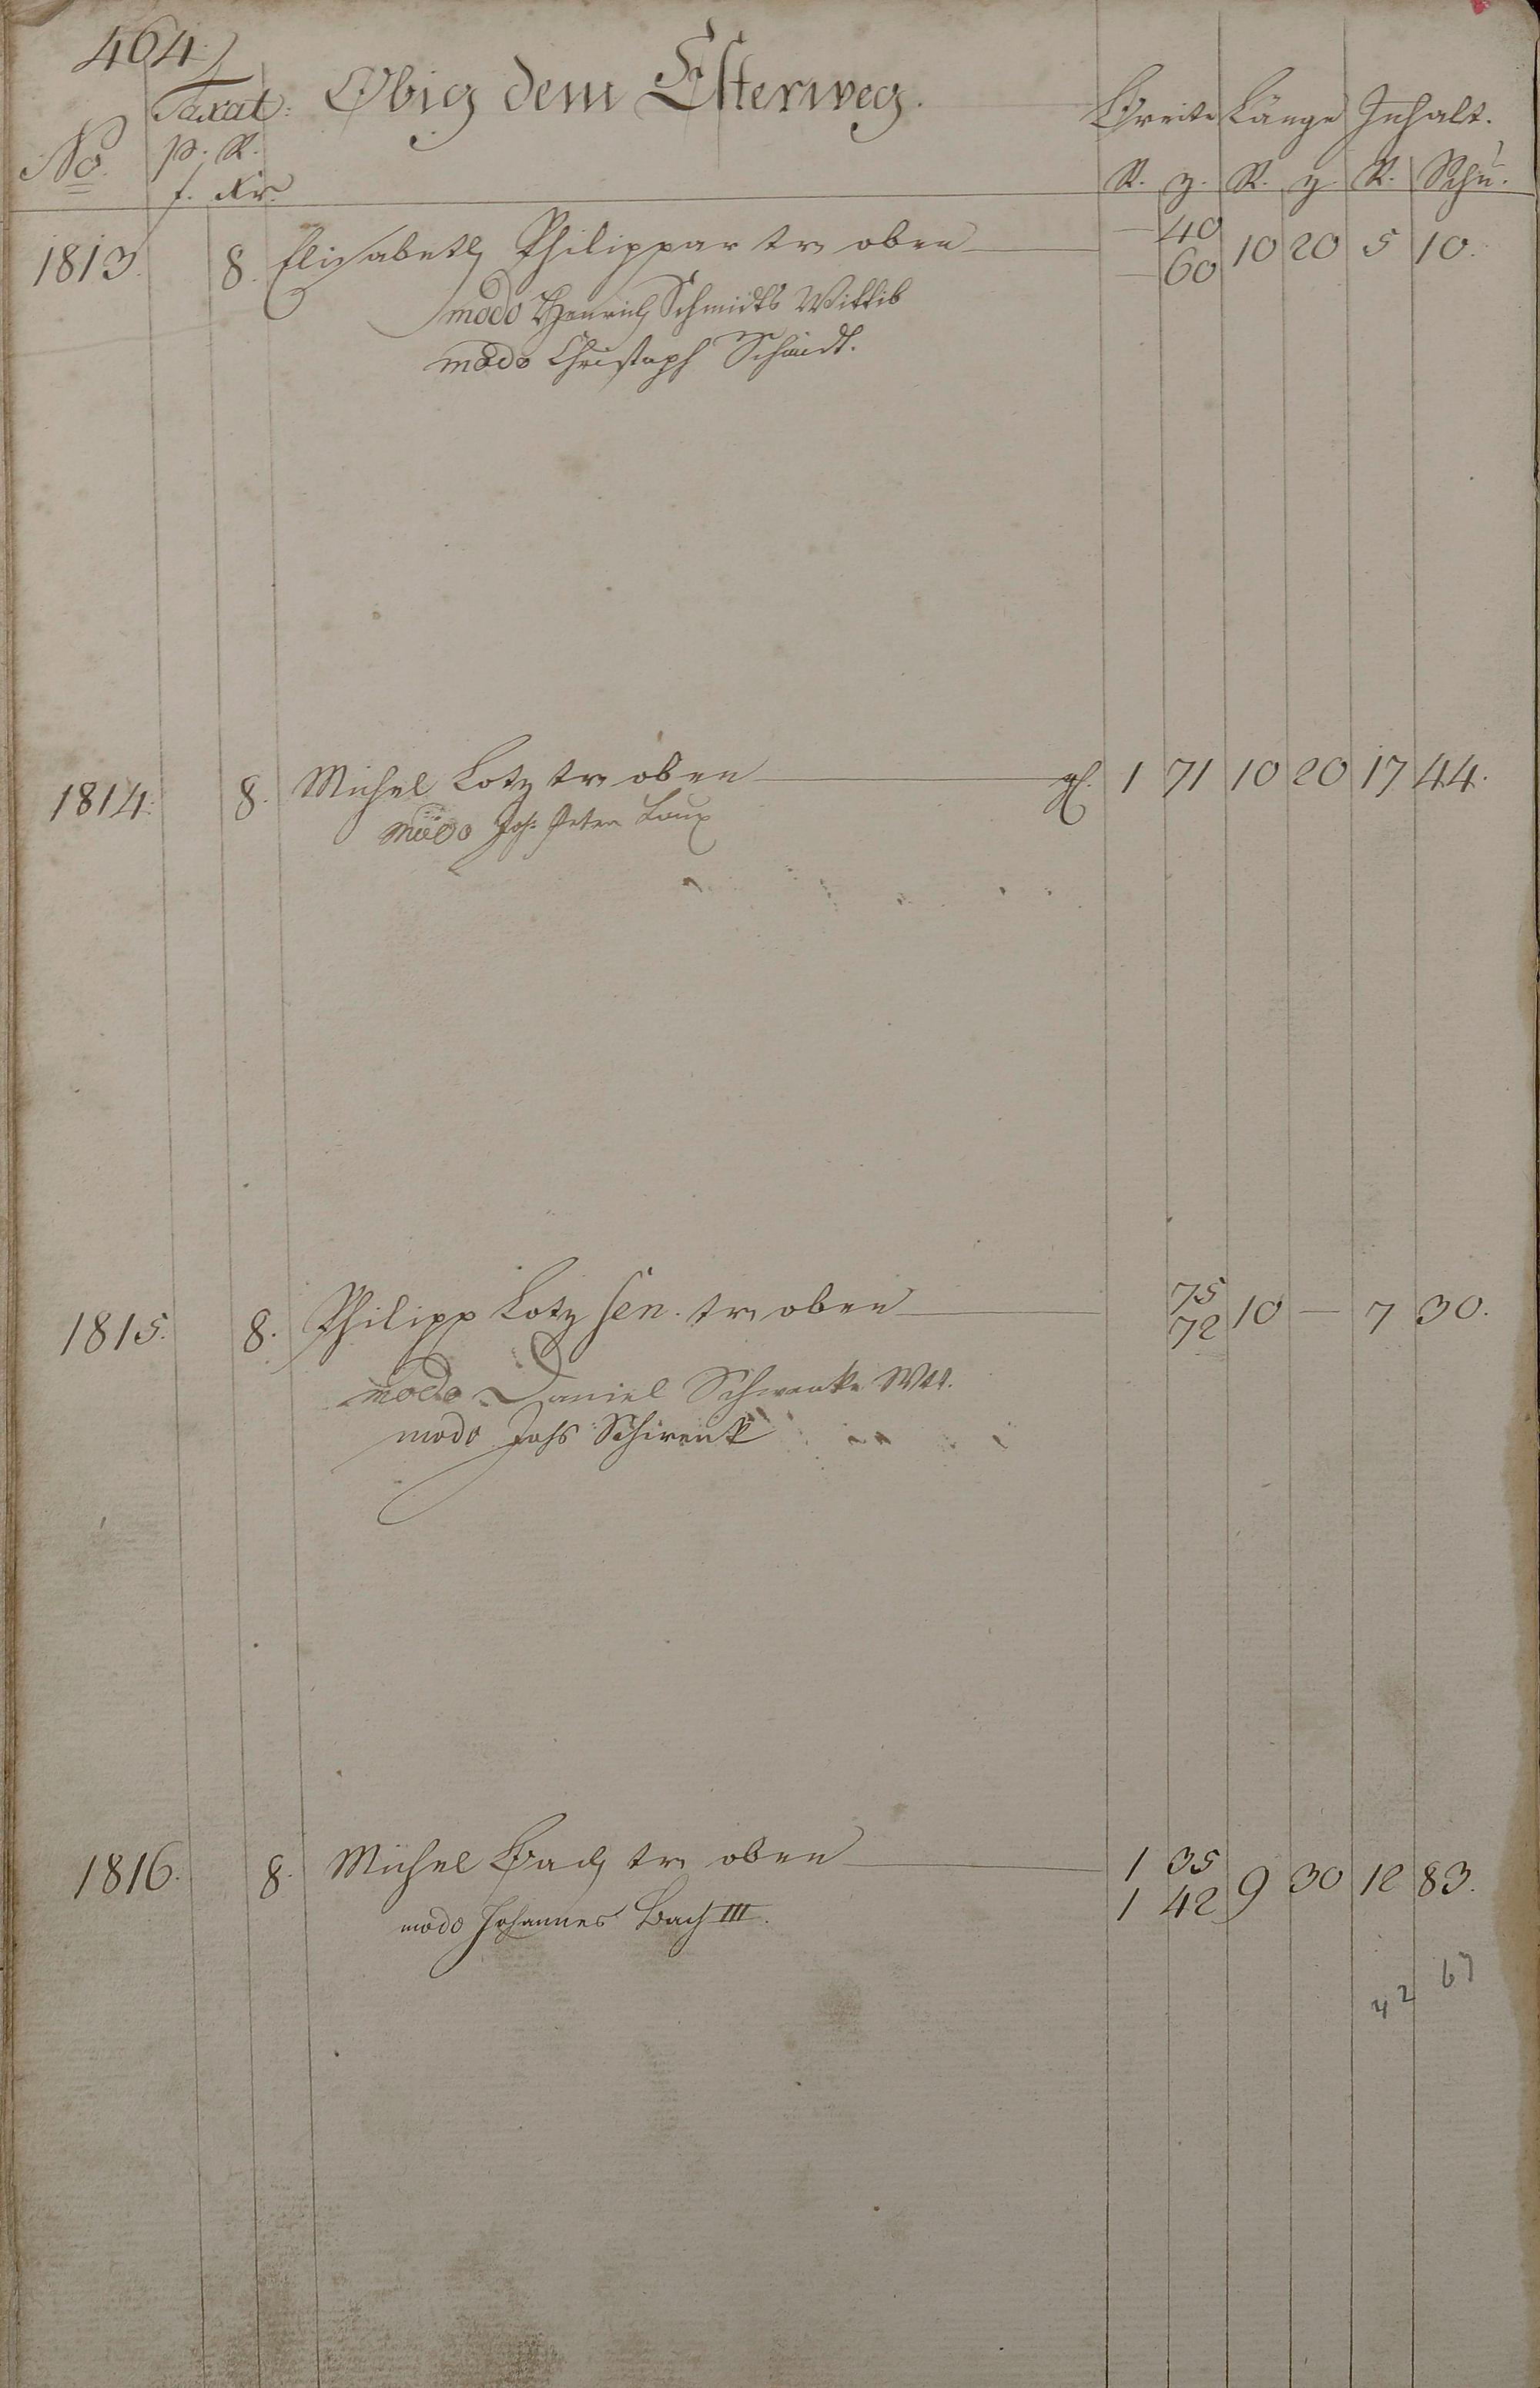 464.
Taxat: Obig dem Esterweg. Breite Länge Inhalt.
No. p. R. R. z. R. z. R. Schu.
f. Xr.
1813. 8. Elisabeth Philippar tr oben — 40 10 20 5 10.
— 60
modo Henrich Schmidts Wittib
modo Christoph Schmidt.
1814. 8. Michel Lotz tr oben gl. 1 71 10 20 17 44.
modo Joh: Peter Laux
1815. 8. Philipp Lotz sen. tr oben 75 10 — 7 30.
72
modo Daniel Schwenks Wtt.
modo Johs Schwenk
1816. 8. Michel Bach tr oben 1 35 9 30 12 83.
1 42
modo Johannes Bach III.
42 67